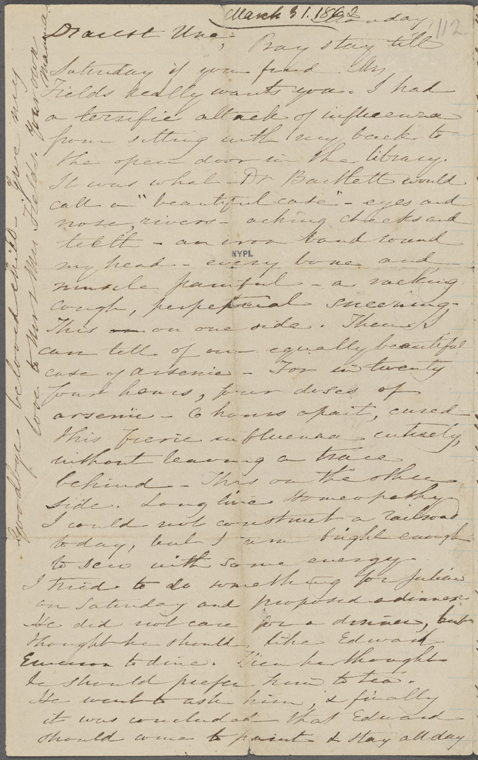 March 31. 1862
Monday,
112
Dearest Una,
Pray stay till
Saturday if you find Mrs
Fields really wants you. I had
a terrific attack of influenza
from sitting with my back to
the open door in the library.
It was what Dr Bartlett would
call a "beautiful case" - eyes and
nose, rivers - aching cheeks and
teeth - an iron band round
my head - every bone and
NYPL
muscle painful - a racking
cough, perpetual sneezing.
This on one side. Then I
can tell of our equally beautiful
case of arsenic - For in twenty
four hours, four doses of
arsenic - 6 hours apart, cured
this fierce influenza entirely,
without leaving a trace
behind - This on the other
side. Long live Homeopathy
I could not construct a railroad
today, but I am bright enough
to sew with some energy
I tried to do something for Julian
on Saturday and proposed a dinner
He did not care for a dinner, but
thought he should like Edward
Emerson to dine. Then he thought
he should prefer him to tea.
He went to ask him, & finally
it was concluded that Edward
should come to paint & stay all day
Goodbye beloved child - Give my
love to Mr & Mrs Fields. Your own
Mama.